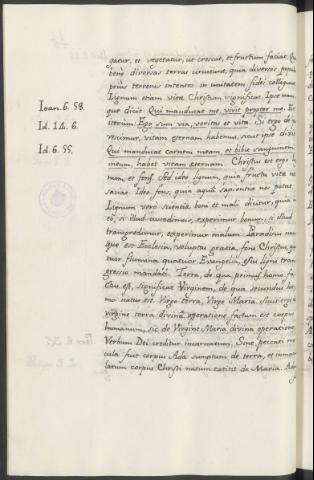 gatur, et vegetatur, ut crescat, et fructum faciat.
tene diversas terras circueunt, quia diversos populos
prius terrenis intentos in unitatem fidei
Lignum etiam vitæ Christum significat. Ipse
que dicit. Qui manducat me, vivit propter me. Et
Ioan. 6. 58.
iterum. Ego sum via, veritas et vita. Si ergo de
Id. 14. 6.
vescimur, vitam æternam habemus, sicut ipse
Qui manducat carnem meam, et bibit sanguinem
Id. 6. 55.
meum, habet vitam æternam. Christus est ergo
num et fons. Sed ideo lignum, quia fructu vitæ nos
saciat. Ideo fons, quia aquâ sapientiæ nos potat.
Lignum vero scientiæ boni et mali dicitur, quia
si illud custodimus, experimur bonum, si illud
transgredimur, experimur malum. Paradisus
que est Ecclesia, voluptas gratia, fons Christus,
tuor flumina quatuor Evangelia, esus ligni trans
gressio mandati. Terra, de qua primus homo fa
ctus est, significat Virginem, de qua secundus ho
mo natus est. Virgo terra, Virgo Maria. Sicut ergo de
virgine terra divinâ operatione factum est corpus
humanum, sic de Virgine Maria divina operatione
Verbum Dei creditur incarnatum. Sine peccati ma
cula fuit corpus Adæ sumptum de terra, et immacu
latum corpus Christi natum extitit de Maria.